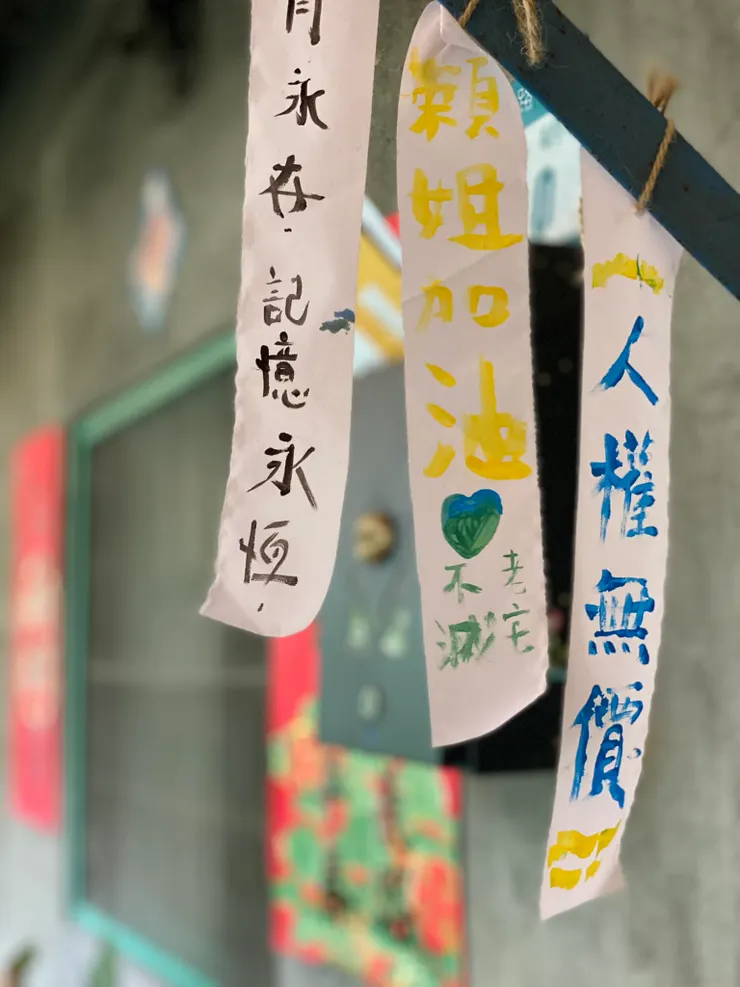 人權無價
賴姐加油
老宅
不滅
永在.記憶永恆.